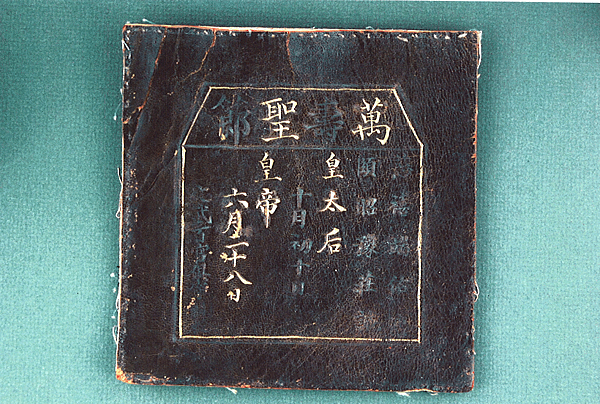 萬壽聖節
慈禧端佑
頤昭豫莊
皇太后
十月初十日
皇帝
六月二十八日